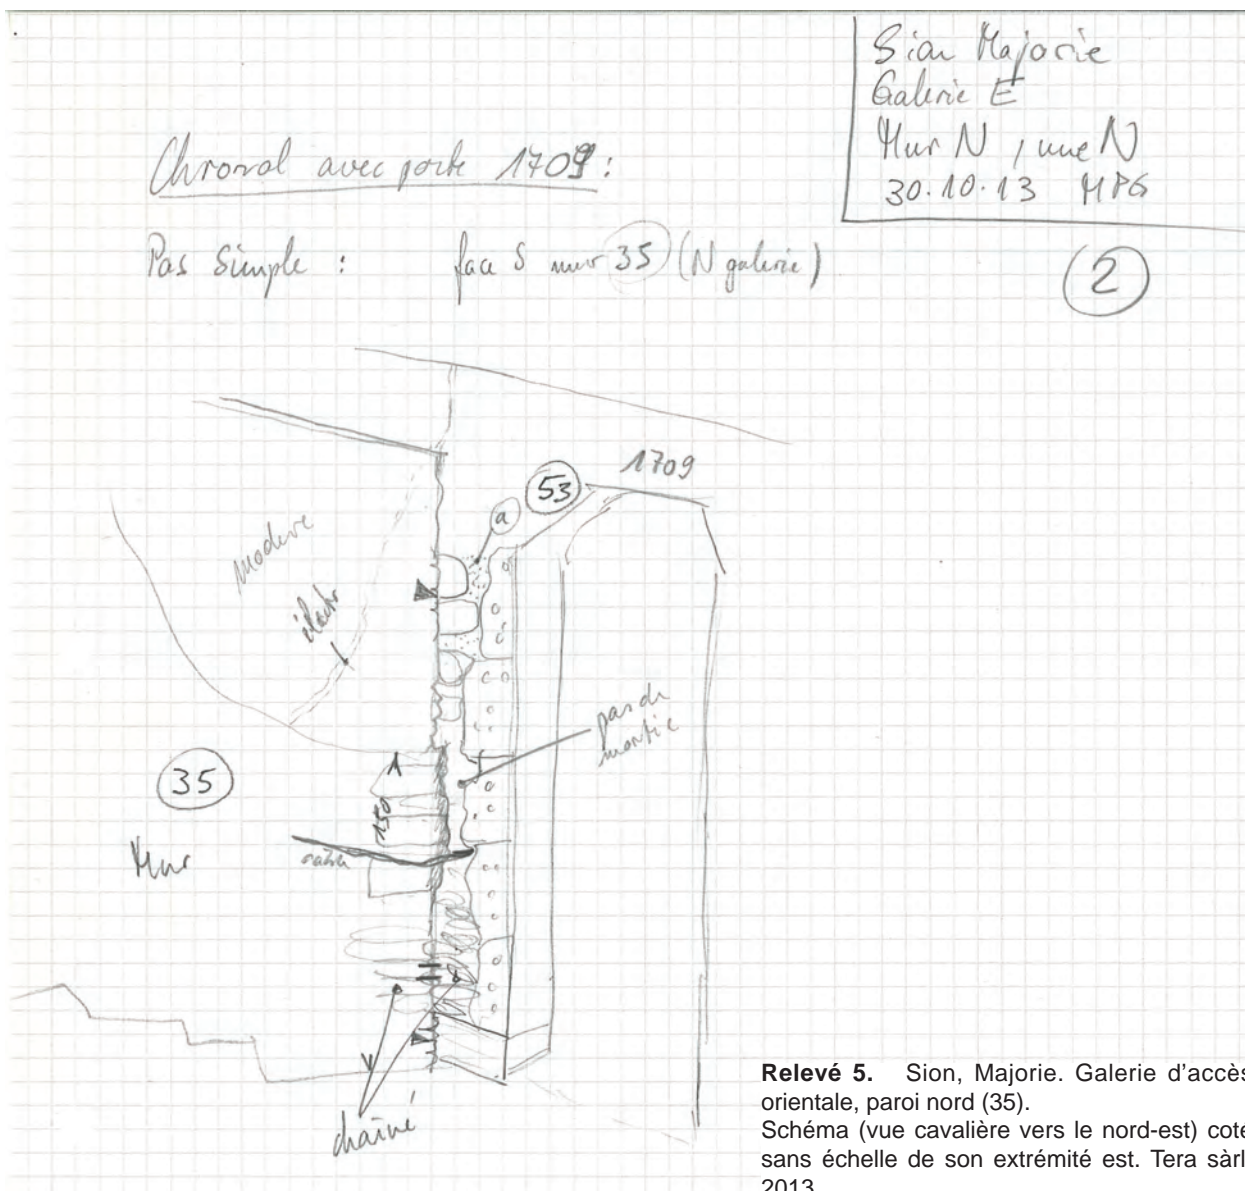 Sion Majorie
Galerie E
Mur N, vue N
30.10.13 MPG
avec porte 1709:
Pas simple : face S mur 35 (N galerie)
2
1709
53
a
moderne
pas de
mortier
35
150
Mur
chaîné
Relevé 5. Sion, Majorie. Galerie d'accès
orientale, paroi nord (35).
Schéma (vue cavalière vers le nord-est) coté
sans échelle de son extrémité est. Tera sàrl
2013